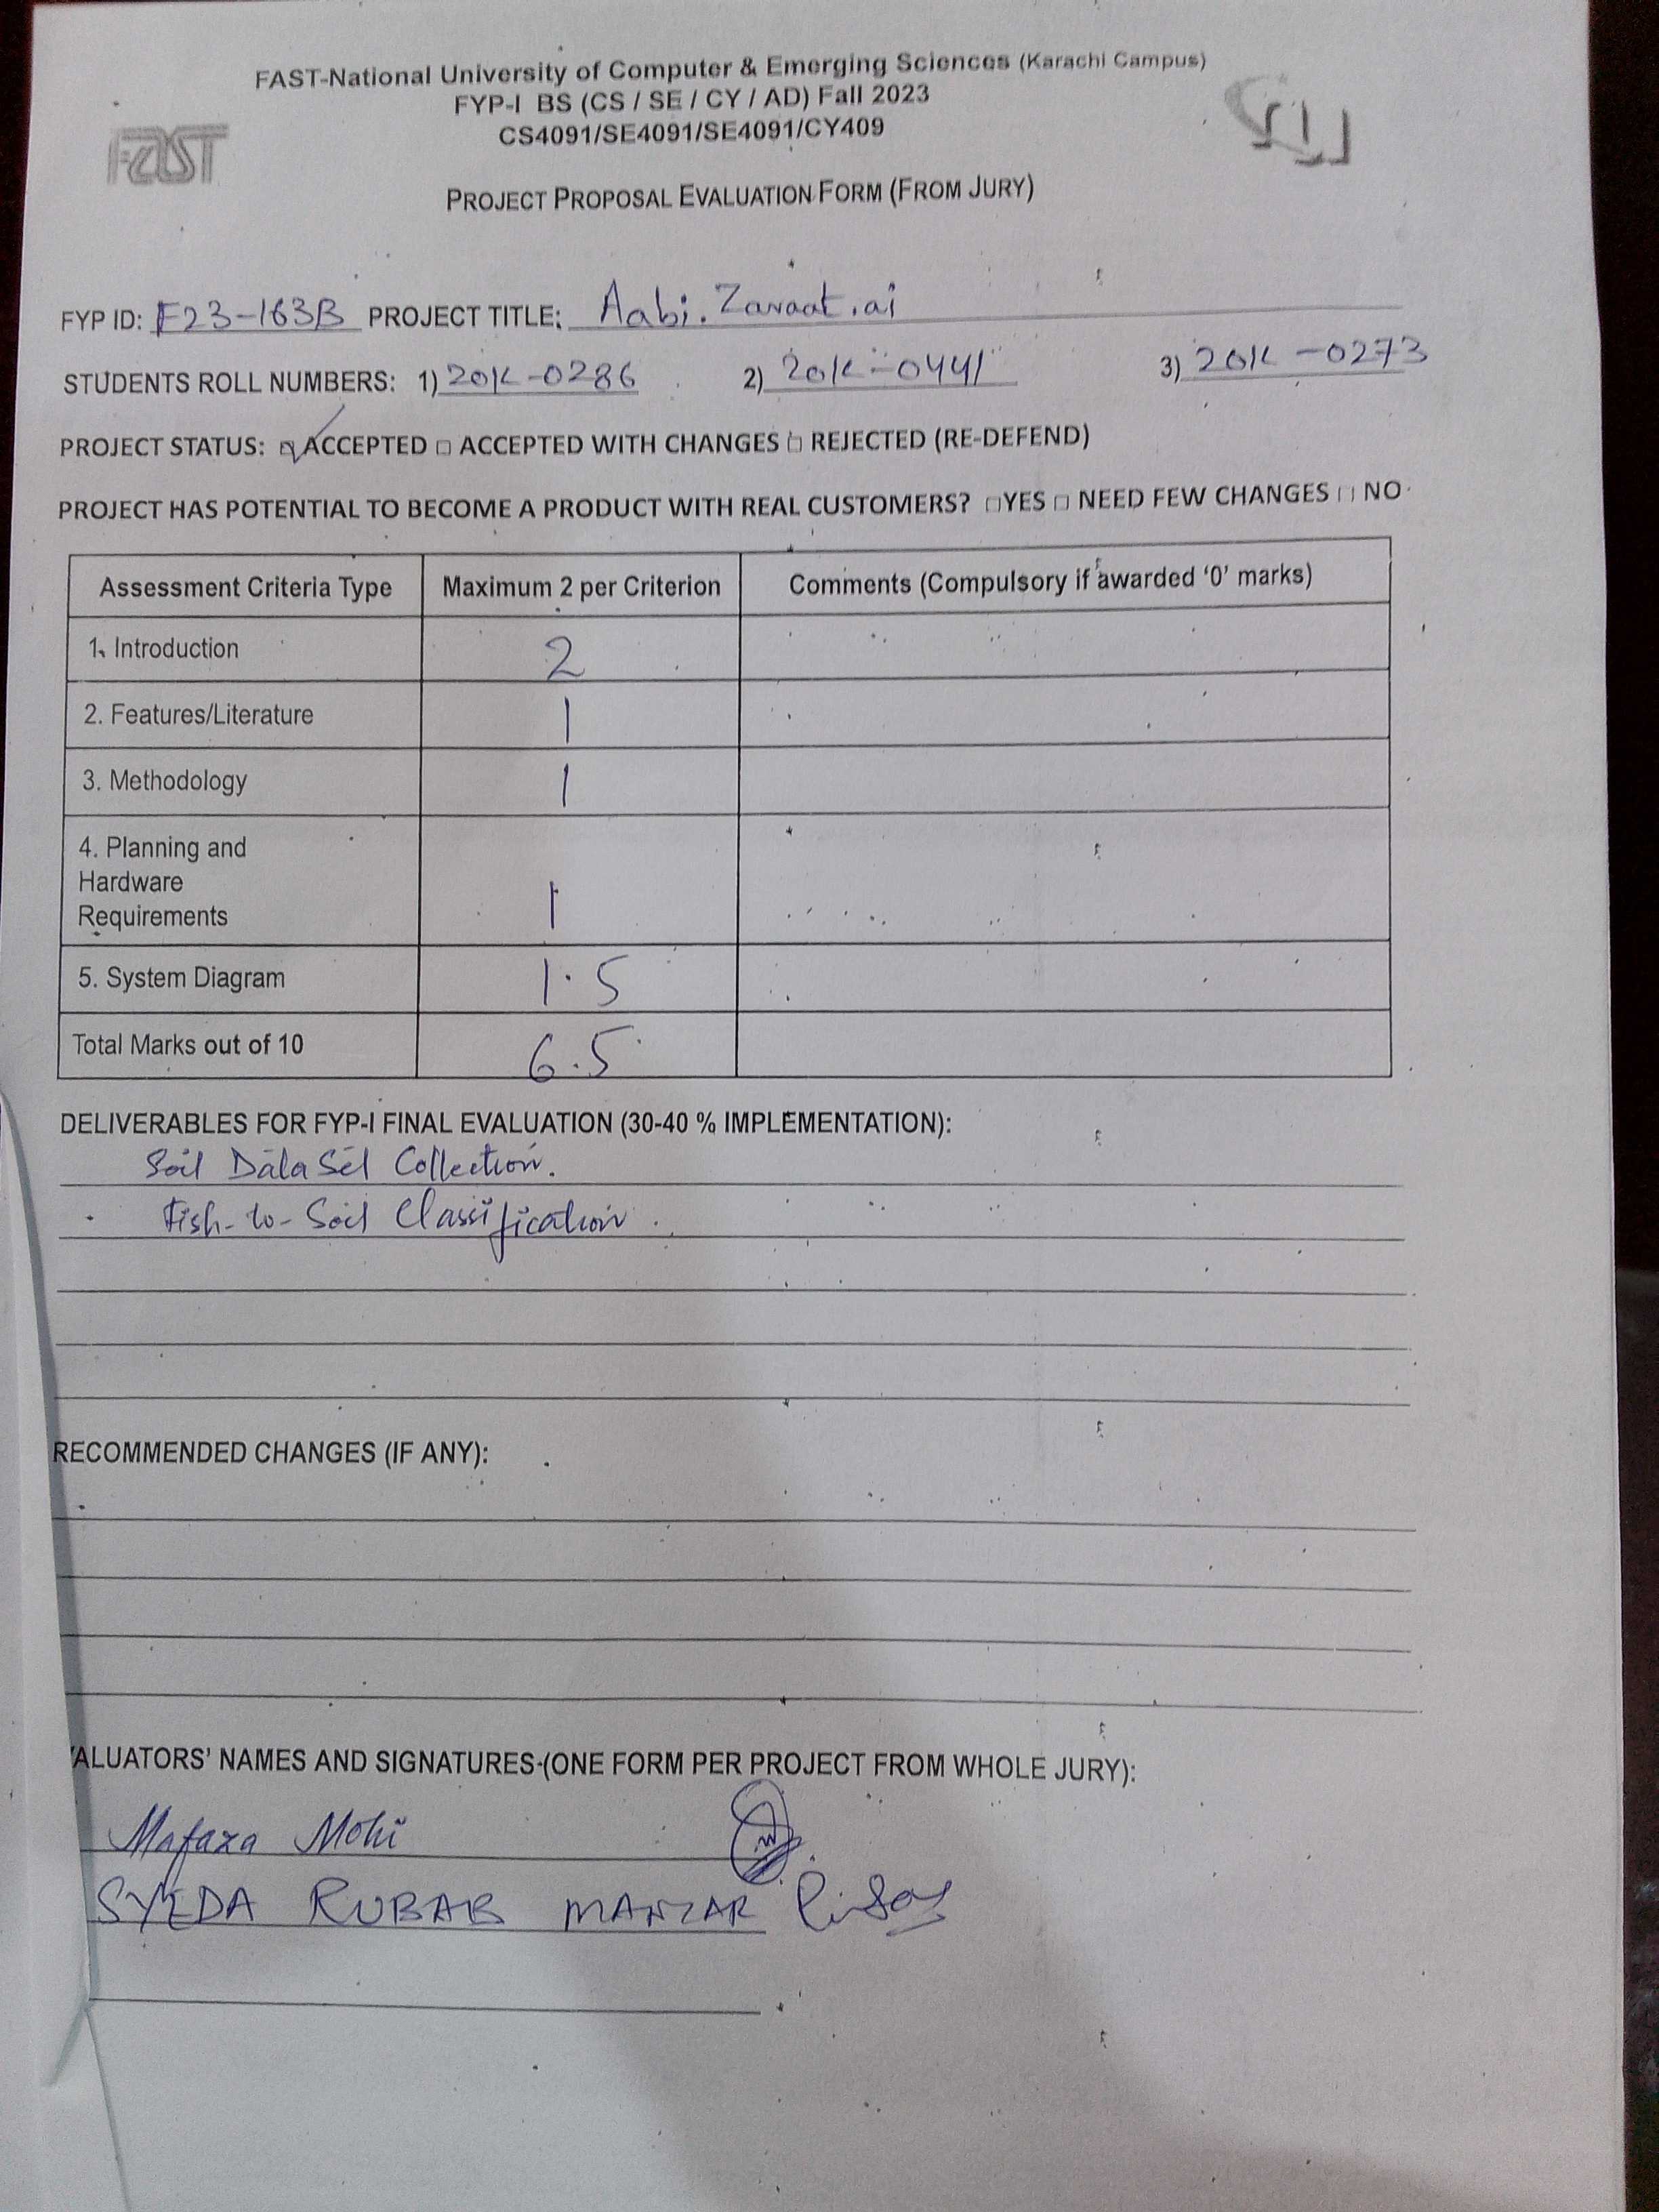 FAST-National University of Computer & Emerging Sciences (Karachi Campus)
FYP-I BS (CS / SE / CY / AD) Fall 2023
CS4091/SE4091/SE4091/CY409
FAST
PROJECT PROPOSAL EVALUATION FORM (FROM JURY)
FYP ID: F23-163B PROJECT TITLE: Aabi.Zaraat.ai
STUDENTS ROLL NUMBERS: 1) 20K-0286 2) 20K-0441 3) 20K-0273
PROJECT STATUS: ☑ ACCEPTED □ ACCEPTED WITH CHANGES □ REJECTED (RE-DEFEND)
PROJECT HAS POTENTIAL TO BECOME A PRODUCT WITH REAL CUSTOMERS? □YES □ NEED FEW CHANGES □ NO
Assessment Criteria Type Maximum 2 per Criterion Comments (Compulsory if awarded ‘0’ marks)
1. Introduction 2
2. Features/Literature 1
3. Methodology 1
4. Planning and
Hardware
Requirements 1
5. System Diagram 1.5
Total Marks out of 10 6.5
DELIVERABLES FOR FYP-I FINAL EVALUATION (30-40 % IMPLEMENTATION):
Soil DataSet Collection.
Fish-to-Soil Classification.
RECOMMENDED CHANGES (IF ANY):
ALUATORS’ NAMES AND SIGNATURES (ONE FORM PER PROJECT FROM WHOLE JURY):
Mafaza Mohi
SYEDA RUBAB MANZAR